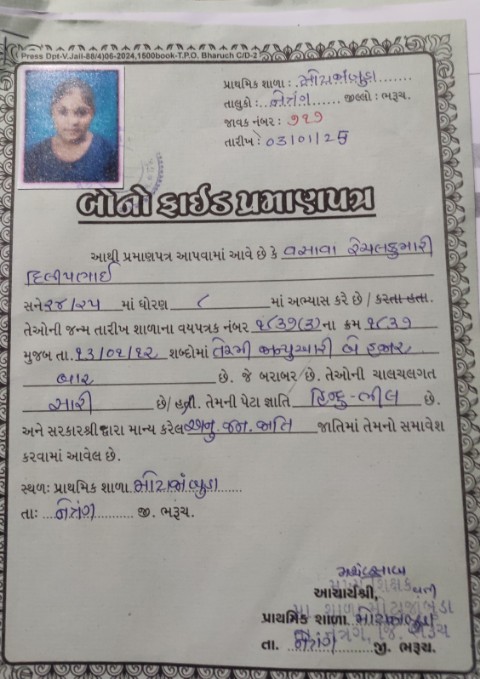 Press Dpt-V.Jail-88(4)06-2024,1500book-T.P.O. Bharuch C/D-2
પ્રાથમિક શાળા : મોટાજાંબુડા
તાલુકો : નેત્રંગ જીલ્લો : ભરૂચ.
જાવક નંબર : ૭૧૭
તારીખ : 03/01/25
બોનોફાઈડ પ્રમાણપત્ર
આથી પ્રમાણપત્ર આપવામાં આવે છે કે વસાવા રેયલકુમારી
દિલીપભાઈ
સને ૨૪/૨૫ માં ધોરણ ૮ માં અભ્યાસ કરે છે / કરતા હતા.
તેઓની જન્મ તારીખ શાળાના વયપત્રક નંબર ૧૮૩૭(૩) ના ક્રમ ૧૮૩૭
મુજબ તા. ૧૩/૦૧/૧૨ શબ્દોમાં તેરમી જાન્યુઆરી બે હજાર
બાર છે. જે બરાબર છે. તેઓની ચાલચલગત
સારી છે/ હતી. તેમની પેટા જ્ઞાતિ હિન્દુ-ભીલ છે.
અને સરકારશ્રી દ્વારા માન્ય કરેલ અનુ. જન. જાતિ જાતિમાં તેમનો સમાવેશ
કરવામાં આવેલ છે.
સ્થળ: પ્રાથમિક શાળા મોટાજાંબુડા
તાઃ નેત્રંગ જી. ભરૂચ.
આચાર્યશ્રી,
પ્રાથમિક શાળા મોટાજાંબુડા
તા. નેત્રંગ જી. ભરૂચ